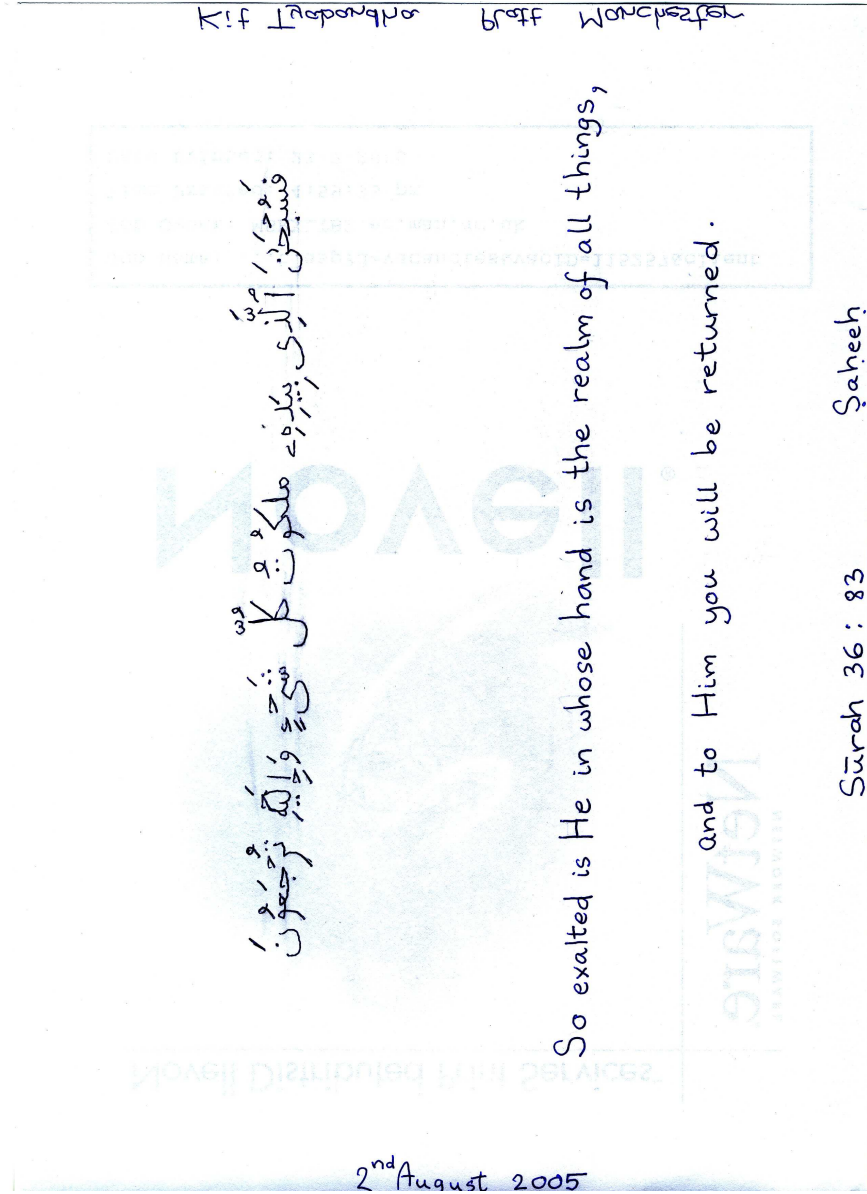 Kit Tyabandha Platt Manchester
فَسُبْحَٰنَ ٱلَّذِى بِيَدِهِۦ مَلَكُوتُ كُلِّ شَىْءٍ وَإِلَيْهِ تُرْجَعُونَ
So exalted is He in whose hand is the realm of all things,
and to Him you will be returned.
Sūrah 36 : 83 Ṣaḥeeḥ
2nd August 2005
Novell
NetWare
NETWORK SOFTWARE
Novell Distributed Print Services